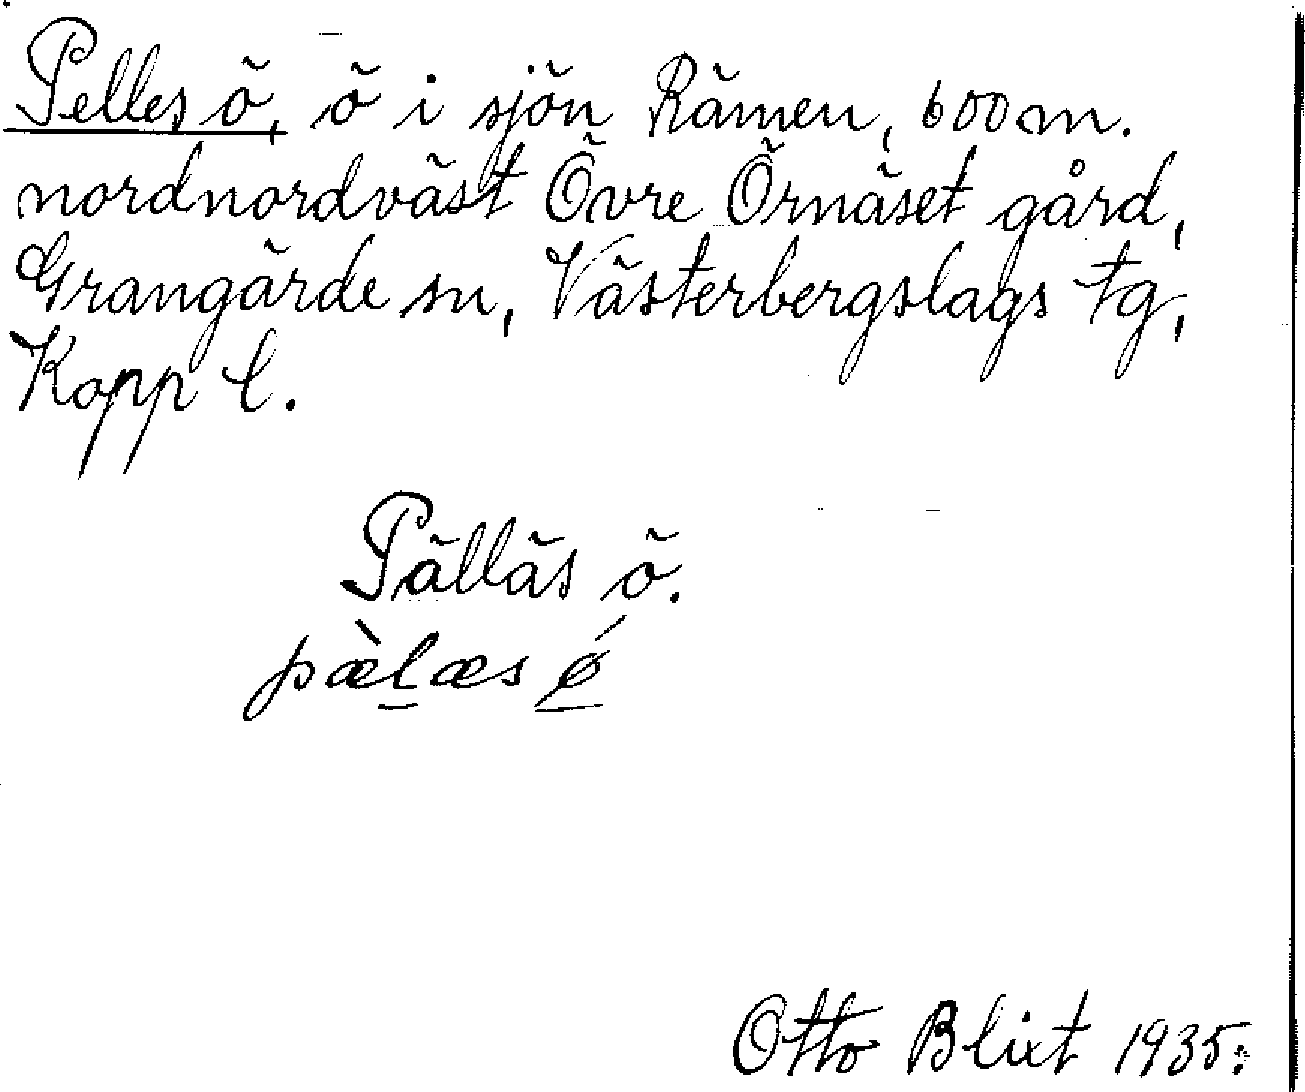 Pelles ö, ö i sjön Rämen, 600 m.
nordnordväst Övre Örnäset gård,
Grangärde sn, Västerbergslags tg,
Kopp l.
Pälläs ö.
pæ̀l̲æs ǿ̲
Otto Blixt 1935.